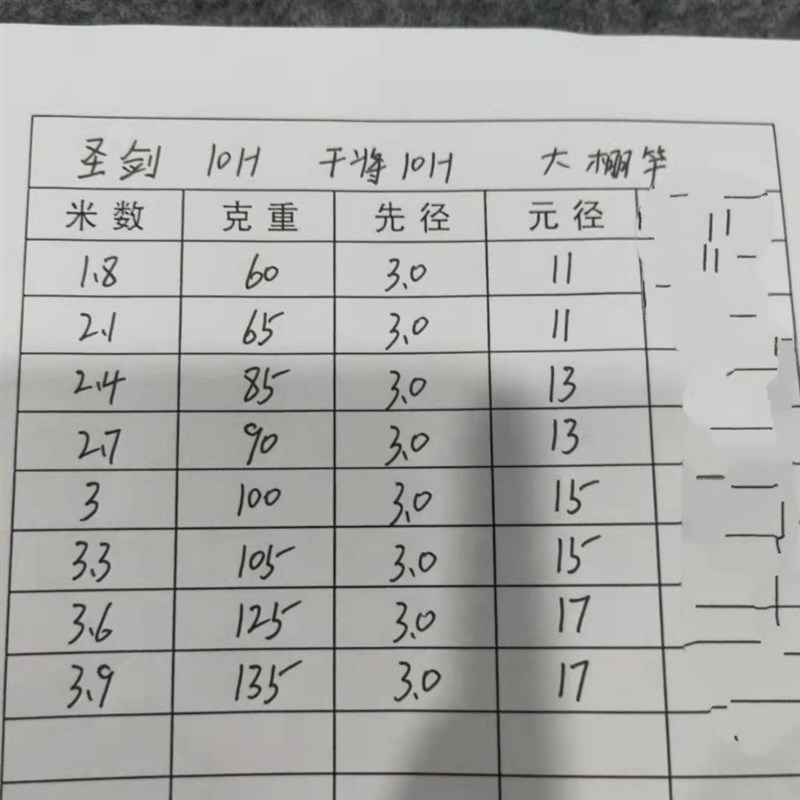 圣剑 10H 干将10H 大棚竿
米数 克重 先径 元径
1.8 60 3.0 11
2.1 65 3.0 11
2.4 85 3.0 13
2.7 90 3.0 13
3 100 3.0 15
3.3 105 3.0 15
3.6 125 3.0 17
3.9 135 3.0 17